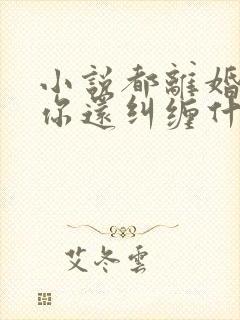 小説都離婚
你還纠缠什
艾冬雲